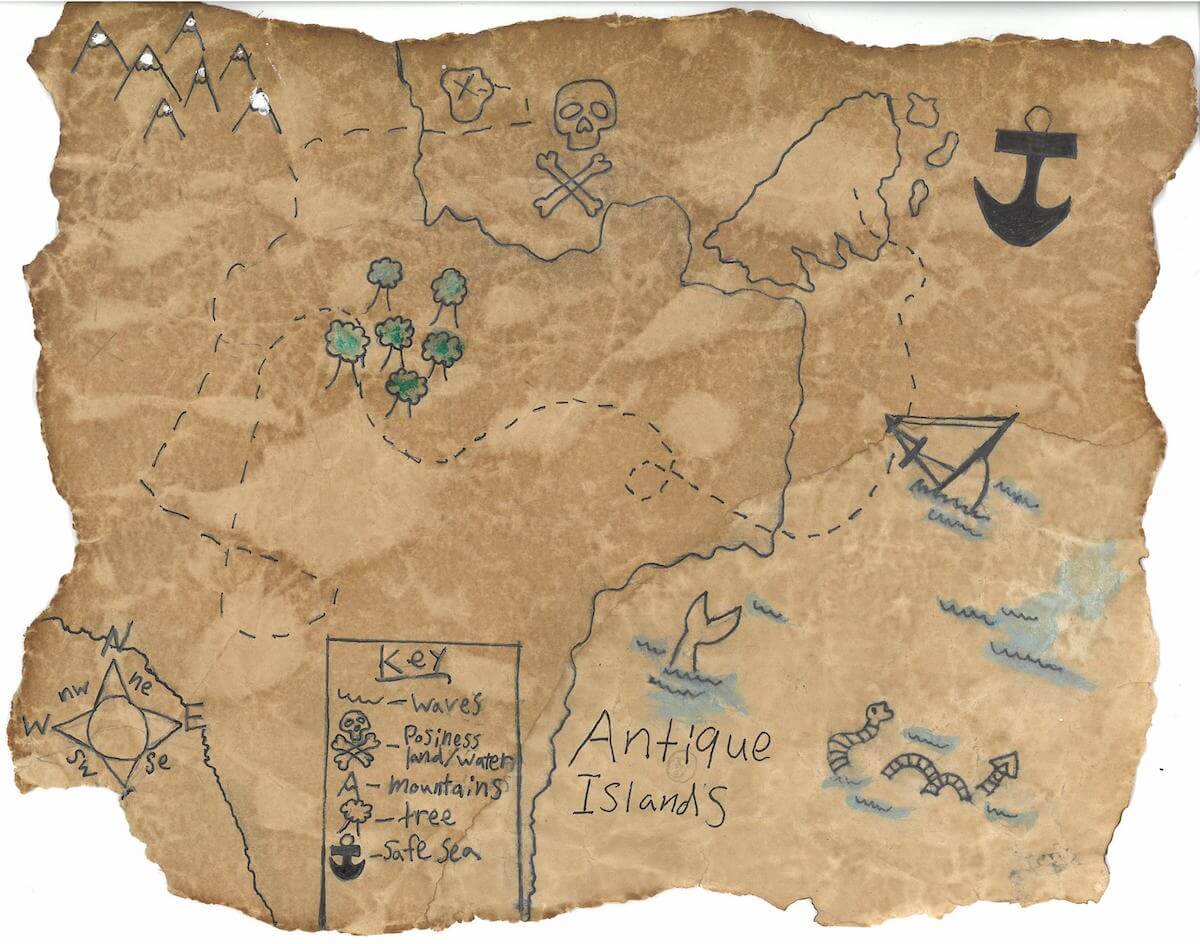 X
N
nw ne
W E
sw se
Key
- waves
- Posiness
land/water
- mountains
- tree
- Safe Sea
Antique
Islands